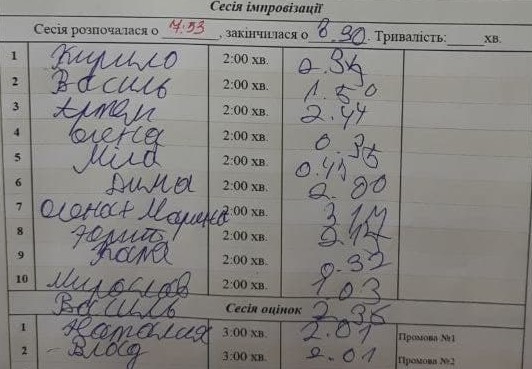 Сесія імпровізації
Сесія розпочалася о 7:53, закінчилася о 8.30. Тривалість:_____хв.
1 Кирило 2:00 хв. 2.35
2 Василь 2:00 хв. 1.50
3 Артем 2:00 хв. 2.44
4 Олена 2:00 хв. 0.35
5 Міла 2:00 хв. 0.45
6 Дима 2:00 хв. 2.00
7 Олена + Марина 2:00 хв. 3.17
8 Юрій 2:00 хв.
9 Катя 2:00 хв. 0.32
10 Мирослав 2:00 хв. 1 03
Василь Сесія оцінок 2.36
1 Наталия 3:00 хв. 2.01 Промова №1
2 - Влад 3:00 хв. 2.01 Промова №2